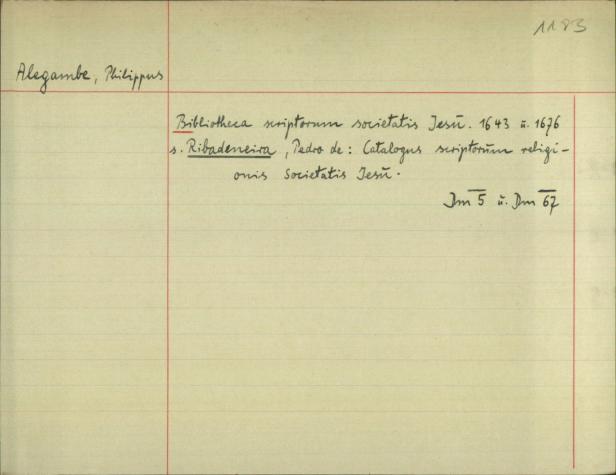 1183
Alegambe, Philippus
Bibliotheca scriptorum societatis Jesū. 1643 ū. 1676
s. Ribadeneira, Pedro de: Catalogus scriptorūm religi-
onis Societatis Jesū.
Dm 5 ū. Dm 67